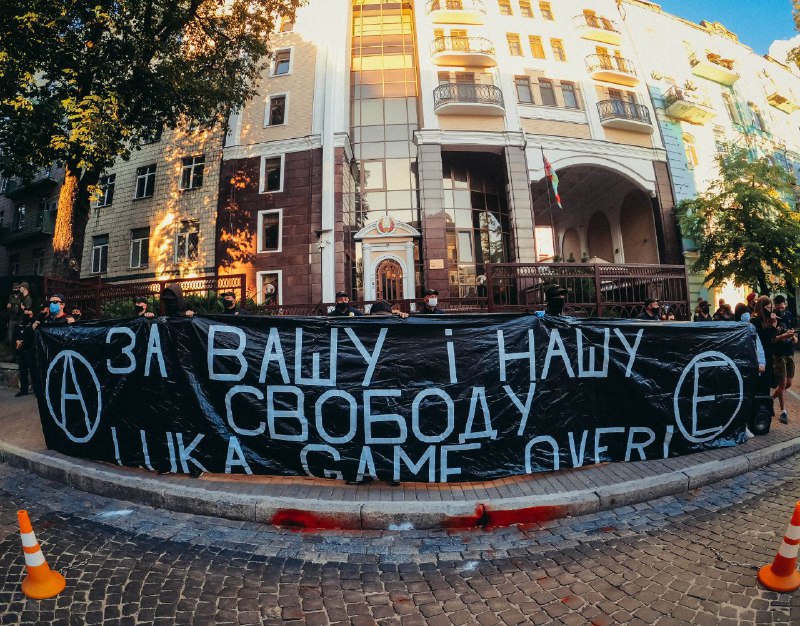 ЗА ВАШУ і НАШУ
СВОБОДУ
LUKA GAME OVER!
A
E